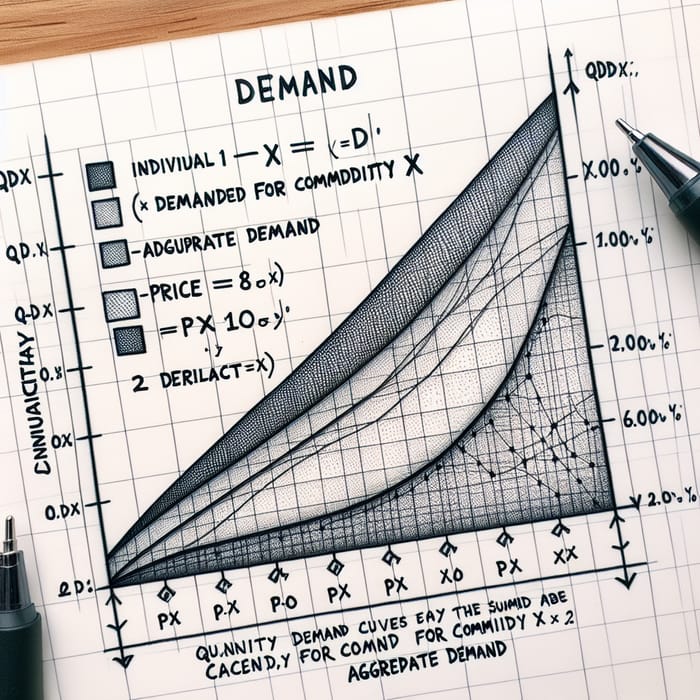 DEMAND
QDDX:,
INDIVIUAL 1 — X = (=D'
QDX
(x DEMANDED FOR COMMDDITY X
X.00.%
-ADGUPRATE DEMAND
QD.X
1.00%
-PRICE = 8.0x)
Q-DX
=PX 10
2 DERILACT=X)
0.X
2.00%
CNNUAICITAY
OX
6.00%
O.DX
2.0%
QD:
PX P.X P.O PX PX XO PX XX
QU.NNITY DEMAND CUVES EAY THE SUIMID ABE
CACEND,Y FOR COMND FOR COMMIIDY X x 2
AGGREDATE DEMAND